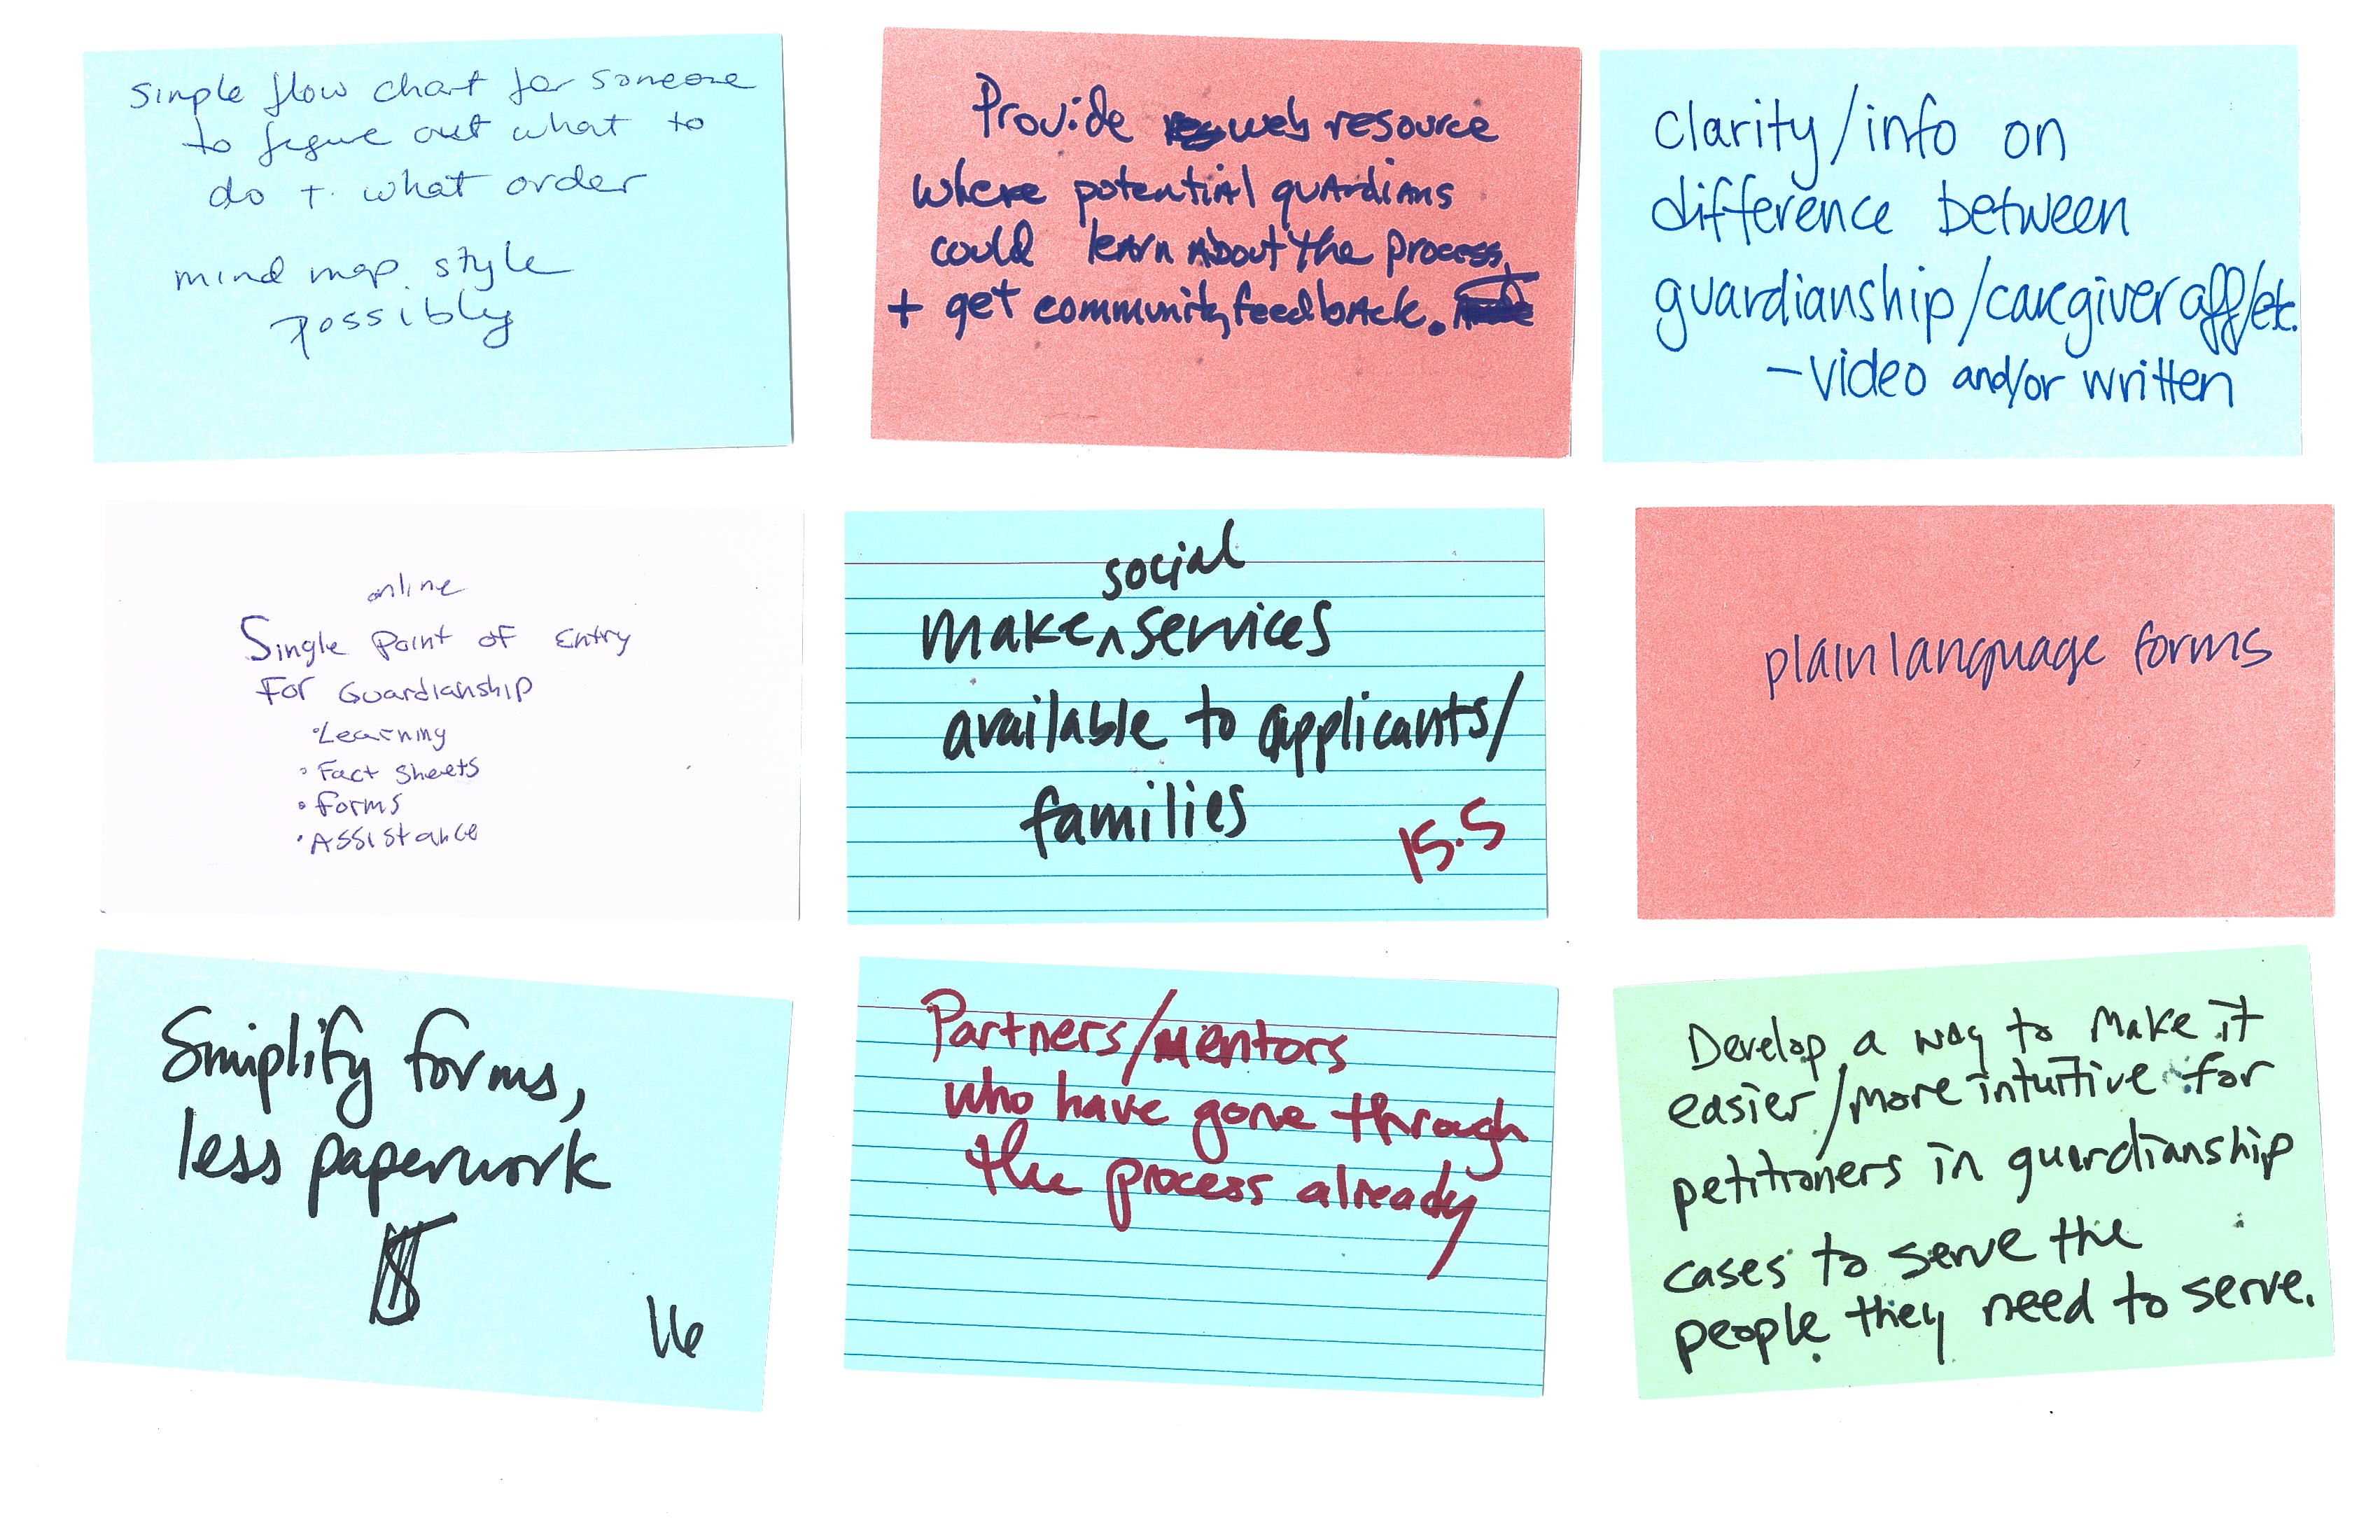 simple flow chart for someone
to figure out what to
do + what order
mind map style
possibly
Provide web resource
where potential guardians
could learn about the process
+ get community feedback.
clarity/info on
difference between
guardianship/caregiver aff/etc.
- video and/or written
online
Single Point of Entry
For Guardianship
• Learning
• Fact Sheets
• Forms
• Assistance
social
make ^ services
available to applicants/
families
15.5
plain language forms
Simplify forms,
less paperwork
16
Partners/mentors
who have gone through
the process already
Develop a way to make it
easier/more intuitive for
petitioners in guardianship
cases to serve the
people they need to serve.